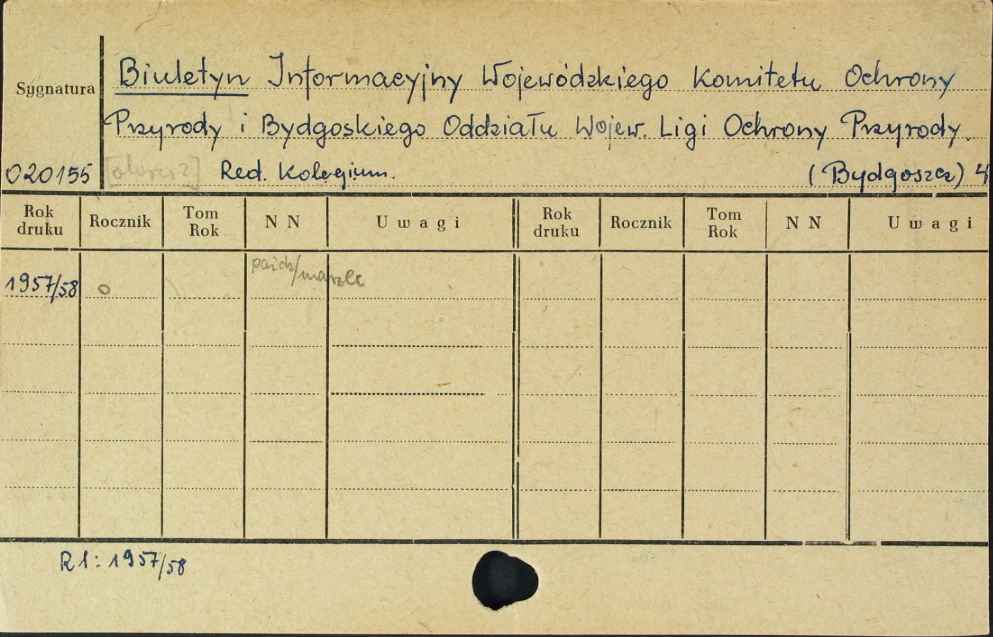 Sygnatura
Biuletyn Informacyjny Wojewódzkiego Komitetu Ochrony
Przyrody i Bydgoskiego Oddziału Wojew. Ligi Ochrony Przyrody.
020155 Red. Kolegium. (Bydgoszcz) 4
Rok druku Rocznik Tom Rok NN Uwagi Rok druku Rocznik Tom Rok NN Uwagi
1957/58 0 paźdz/marzec
R1: 1957/58